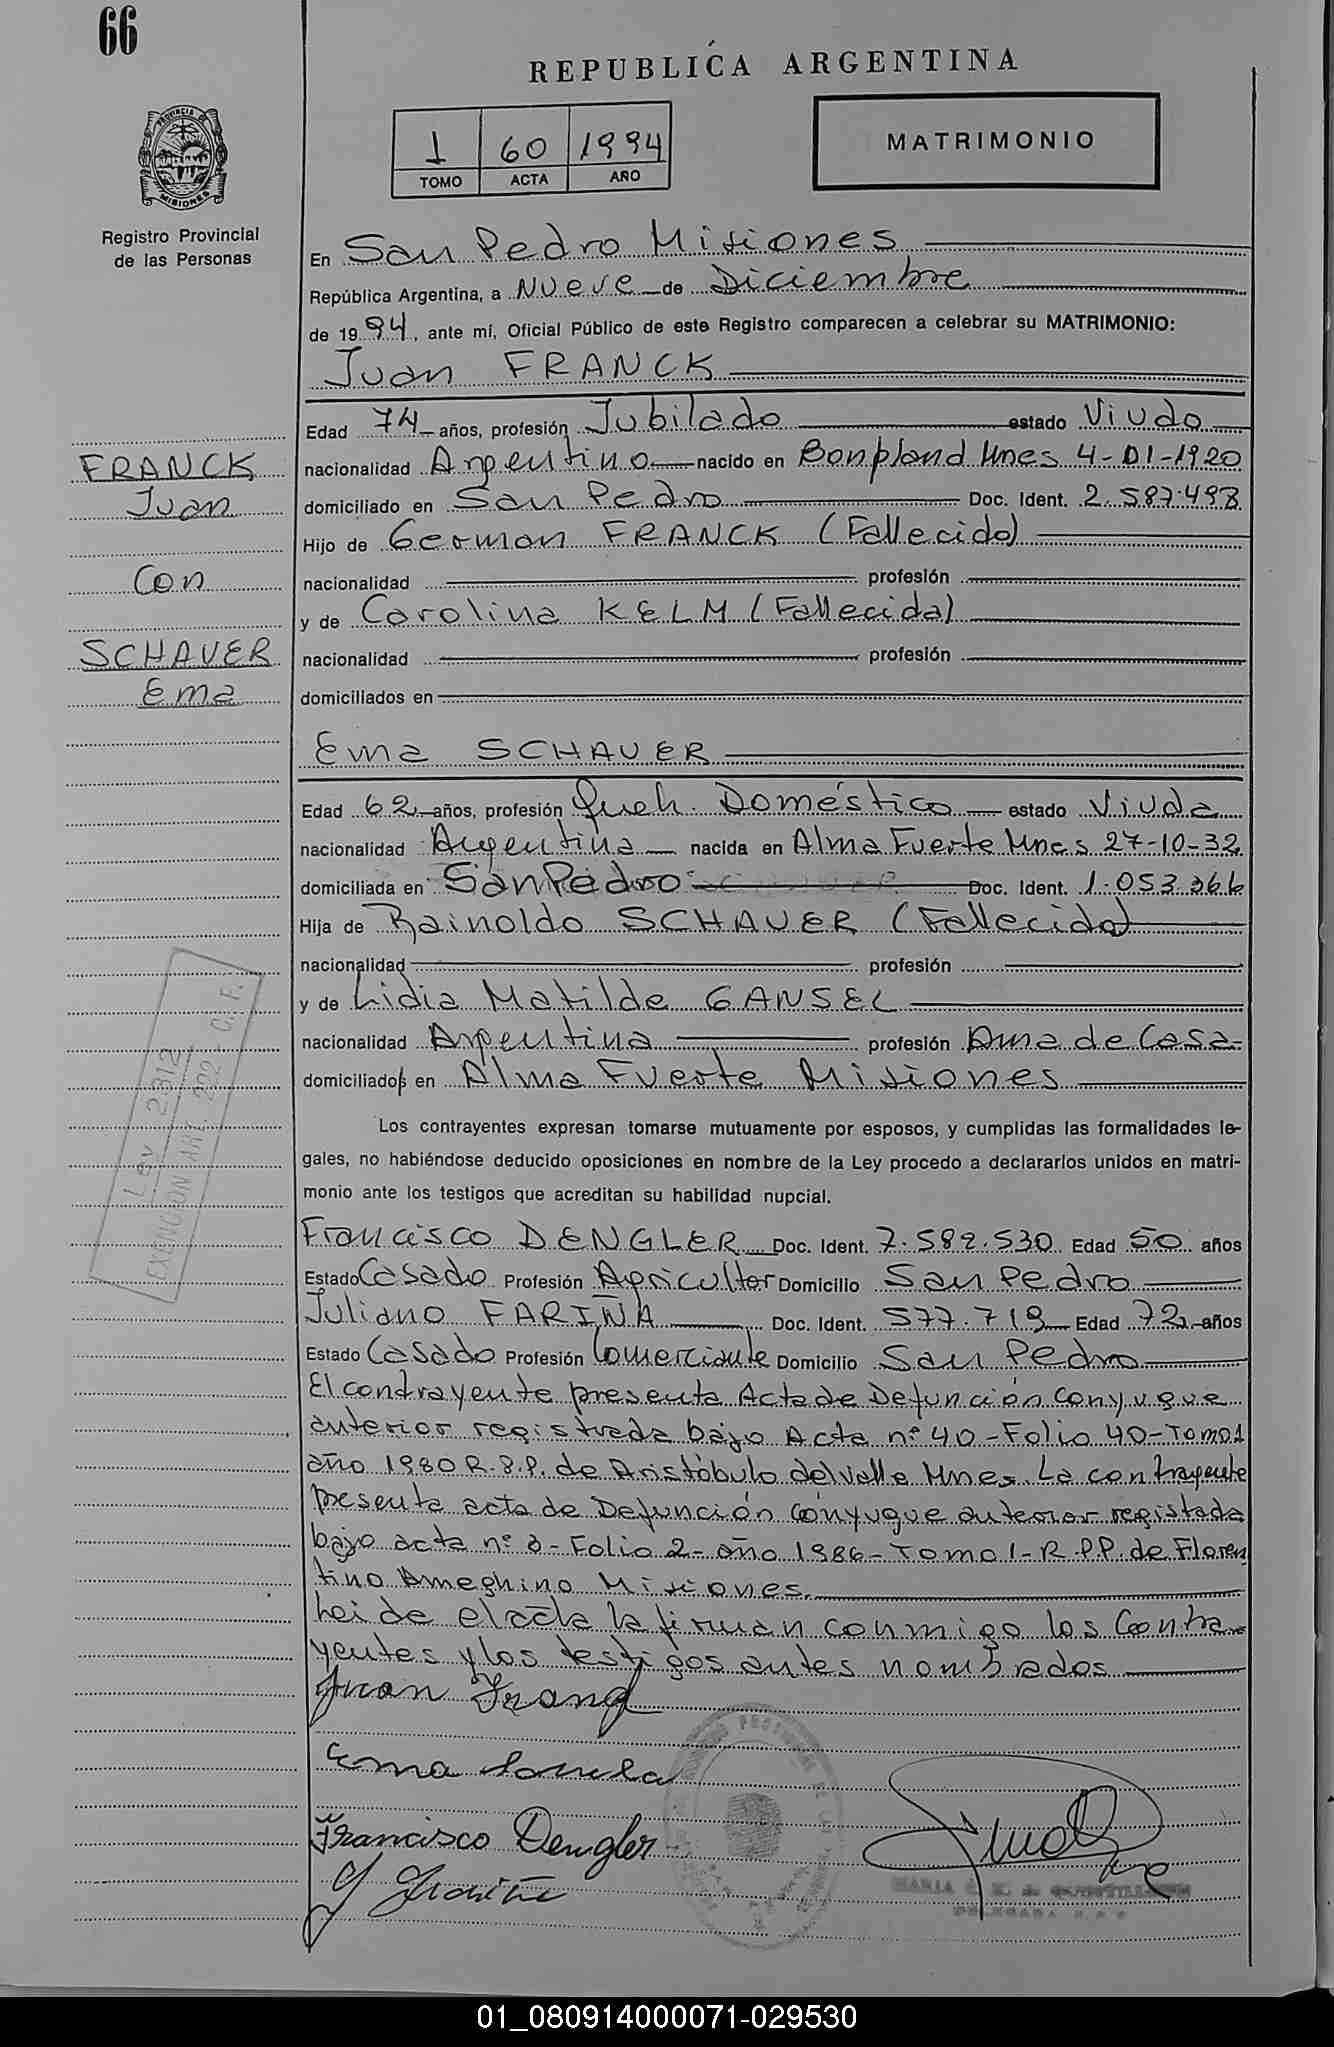 66
REPUBLICA ARGENTINA
1 60 1994
TOMO ACTA AÑO
MATRIMONIO
PROVINCIA DE MISIONES
Registro Provincial
de las Personas
En San Pedro Misiones
República Argentina, a Nueve de Diciembre
de 1994, ante mí, Oficial Público de este Registro comparecen a celebrar su MATRIMONIO:
Juan FRANCK
Edad 74 años, profesión Jubilado estado Viudo
FRANCK nacionalidad Argentino nacido en Bonpland Mnes 4-01-1920
Juan domiciliado en San Pedro Doc. Ident. 2.587.498
Hijo de German FRANCK (Fallecido)
Con nacionalidad profesión
y de Carolina KELM (Fallecida)
SCHAUER nacionalidad profesión
Ema domiciliados en
Ema SCHAUER
Edad 62 años, profesión Queh. Doméstico estado Viuda
nacionalidad Argentina nacida en Alma Fuerte Mnes 27-10-32
domiciliada en San Pedro Doc. Ident. 1.053.266
Hija de Rainoldo SCHAUER (Fallecido)
nacionalidad profesión
y de Lidia Matilde GANSEL
nacionalidad Argentina profesión Ama de Casa
domiciliados en Alma Fuerte Misiones
Ley 2312
EXENCION ART. 222 - C. F.
Los contrayentes expresan tomarse mutuamente por esposos, y cumplidas las formalidades le-
gales, no habiéndose deducido oposiciones en nombre de la Ley procedo a declararlos unidos en matri-
monio ante los testigos que acreditan su habilidad nupcial.
Francisco DENGLER Doc. Ident. 7.582.530 Edad 50 años
Estado Casado Profesión Agricultor Domicilio San Pedro
Juliano FARIÑA Doc. Ident. 577.719 Edad 72 años
Estado Casado Profesión Comerciante Domicilio San Pedro
El contrayente presenta Acta de Defunción conyugue
anterior registrada bajo Acta nº 40-Folio 40-Tomo 1
año 1980 R.P.P. de Aristóbulo del Valle Mnes. La contrayente
presenta acta de Defunción conyugue anterior registada
bajo acta nº 3-Folio 2-año 1986-Tomo 1-R.P.P. de Floren
tino Ameghino Misiones.
Leida el acta la firman conmigo los Contra-
yentes y los testigos antes nombrados
Juan Franq
Ema
Francisco Dengler
J Fariña
MARIA
DELEGADA
01_080914000071-029530